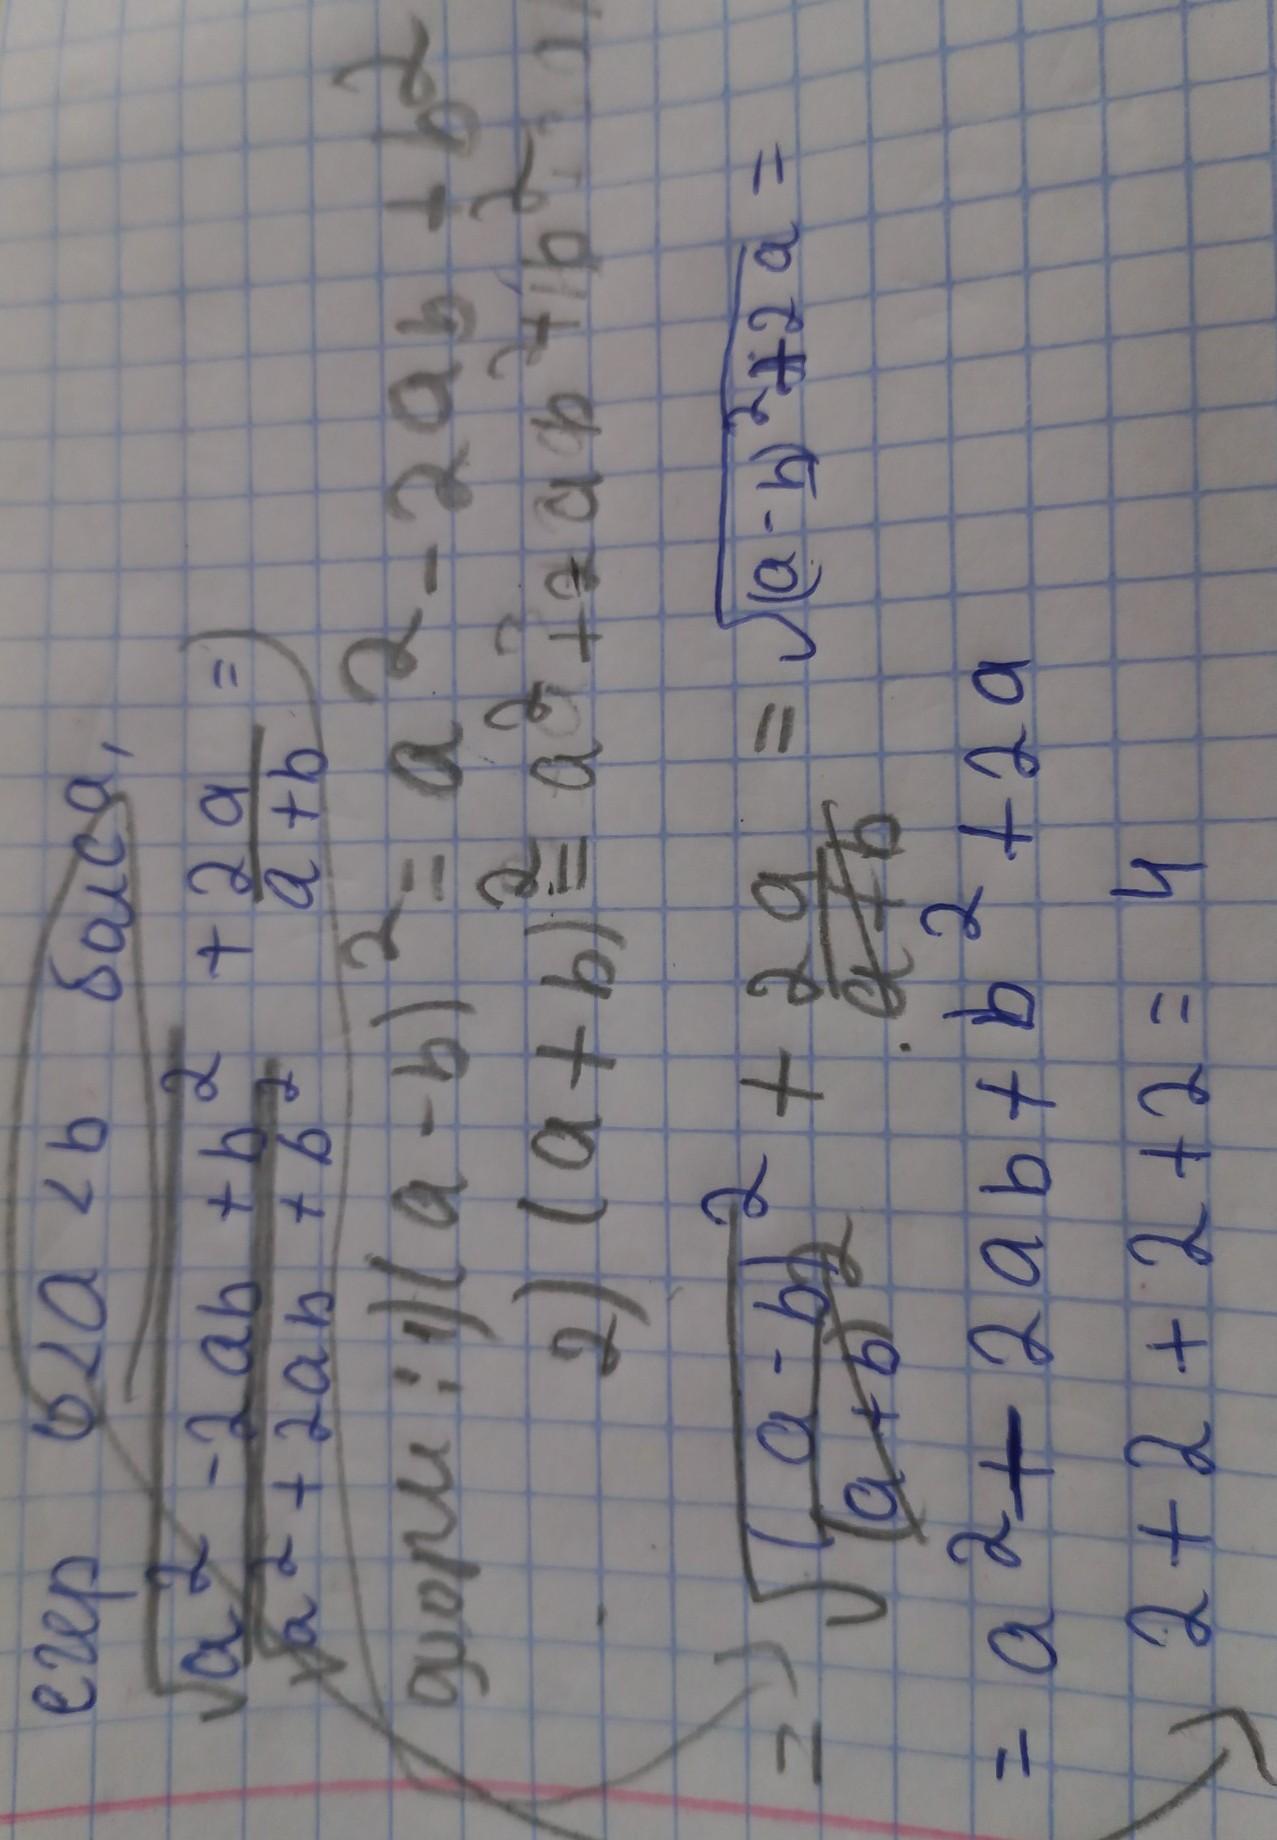 егер 0<a<b болса,
√(a² - 2ab + b²)/(a² + 2ab + b²) + 2a/(a+b) =
1) (a - b)² = a² - 2ab + b²
2) (a + b)² = a²
= √(a - b)²/(a + b)² + 2a/(a+b) = √(a - b)² + 2a =
= a² + 2ab + b² + 2a
2 + 2 + 2 + 2 = 4